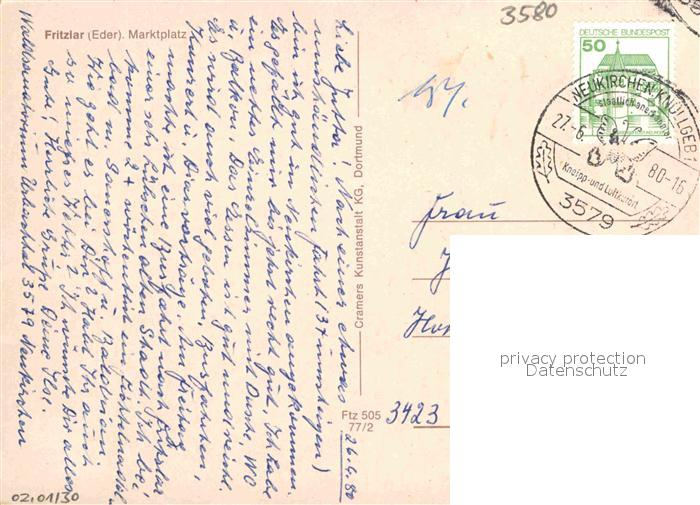 3580
Fritzlar (Eder). Marktplatz
DEUTSCHE BUNDESPOST
50
NEUKIRCHEN, KNÜLLGEB
staatlich anerkannter
27.-6.
80-16
Kneipp- und Luftkurort
3579
26.6.80
Liebe Jutta! Nach einer etwas
umständlichen Fahrt (3x umsteigen)
bin ich gut in Neukirchen angekommen.
Es gefällt mir bis jetzt recht gut, ich habe
ein nettes Einzelzimmer mit Dusche, WC
u. Balkon. Das Essen ist gut und reichl.
Es wird auch viel geboten, Busfahrten,
Konzert u. Diavorträge. Am Freitag
machte ich eine Busfahrt nach Fritzlar
einer sehr hübschen alten Stadt. Ich be-
komme 2x wöchentlich ein Fichtelnadel-
bad u. Sauerstoff u. Baldrian.
Wie geht es bei Dir? Habt Ihr auch
so mieses Wetter? Ich wünsche Dir alles
Gute! Herzliche Grüße Deine Ilse.
Waldsanatorium Urbachtal 3579 Neukirchen
Cramers Kunstanstalt KG, Dortmund
Frau
3423
Ftz 505
77/2
privacy protection
Datenschutz
02.01/30